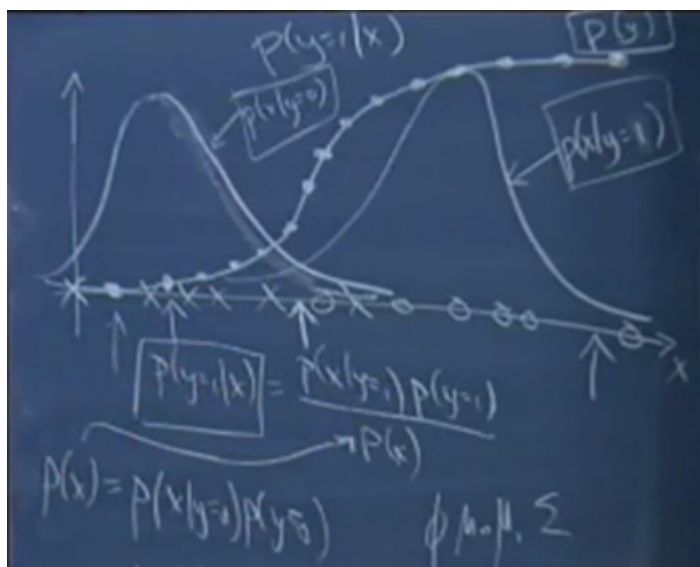 p(y=1|x)
p(y)
p(x|y=0)
p(x|y=1)
x
p(y=1|x) = p(x|y=1) p(y=1)
p(x)
p(x) = p(x|y=0)p(y=0)
ϕ μ₀ μ₁ Σ